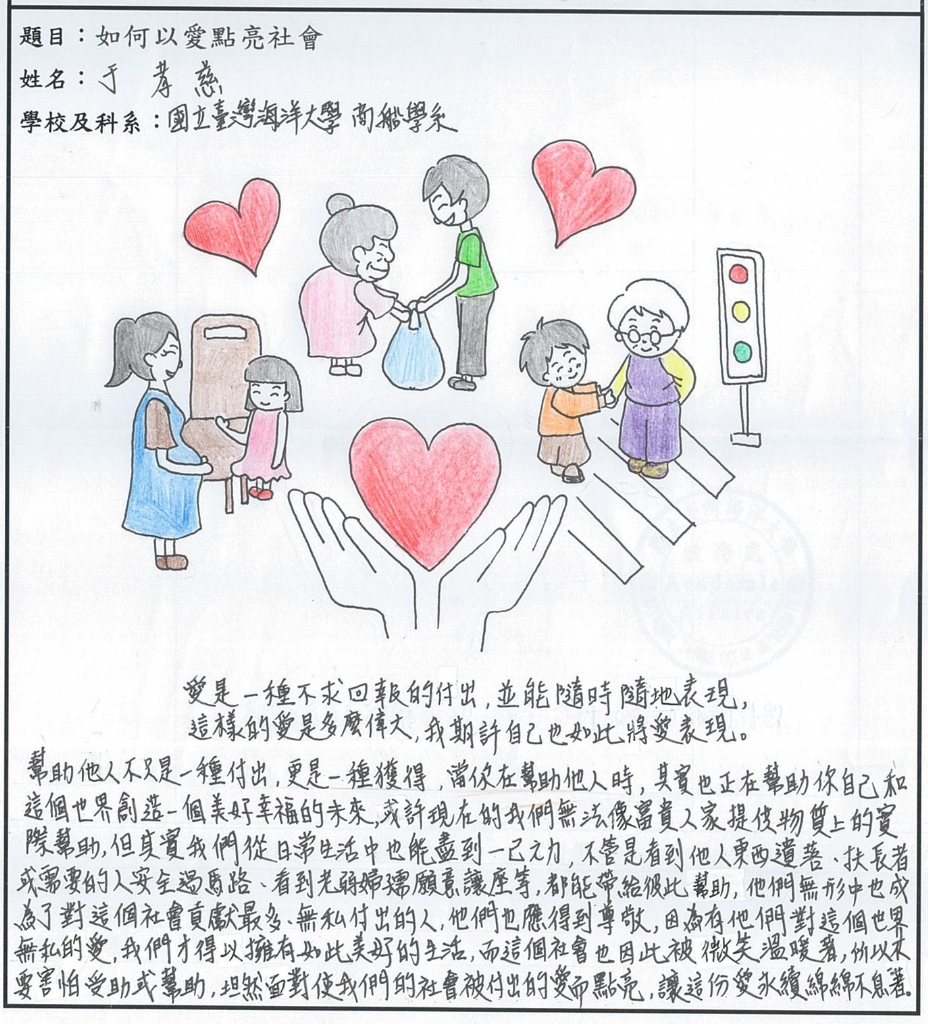 題目：如何以愛點亮社會
姓名：于孝慈
學校及科系：國立臺灣海洋大學 商船學系
愛是一種不求回報的付出，並能隨時隨地表現，
這樣的愛是多麼偉大，我期許自己也如此將愛表現。
幫助他人不只是一種付出，更是一種獲得，當你在幫助他人時，其實也正在幫助你自己和
這個世界創造一個美好幸福的未來，或許現在的我們無法像富貴人家提供物質上的實
際幫助，但其實我們從日常生活中也能盡到一己之力，不管是看到他人東西遺落、扶長者
或需要的人安全過馬路、看到老弱婦孺願意讓座等，都能帶給彼此幫助，他們無形中也成
為了對這個社會貢獻最多、無私付出的人，他們也應得到尊敬，因為有他們對這個世界
無私的愛，我們才得以擁有如此美好的生活，而這個社會也因此被微笑溫暖著，所以不
要害怕受助或幫助，坦然面對使我們的社會被付出的愛而點亮，讓這份愛永續綿綿不息著。